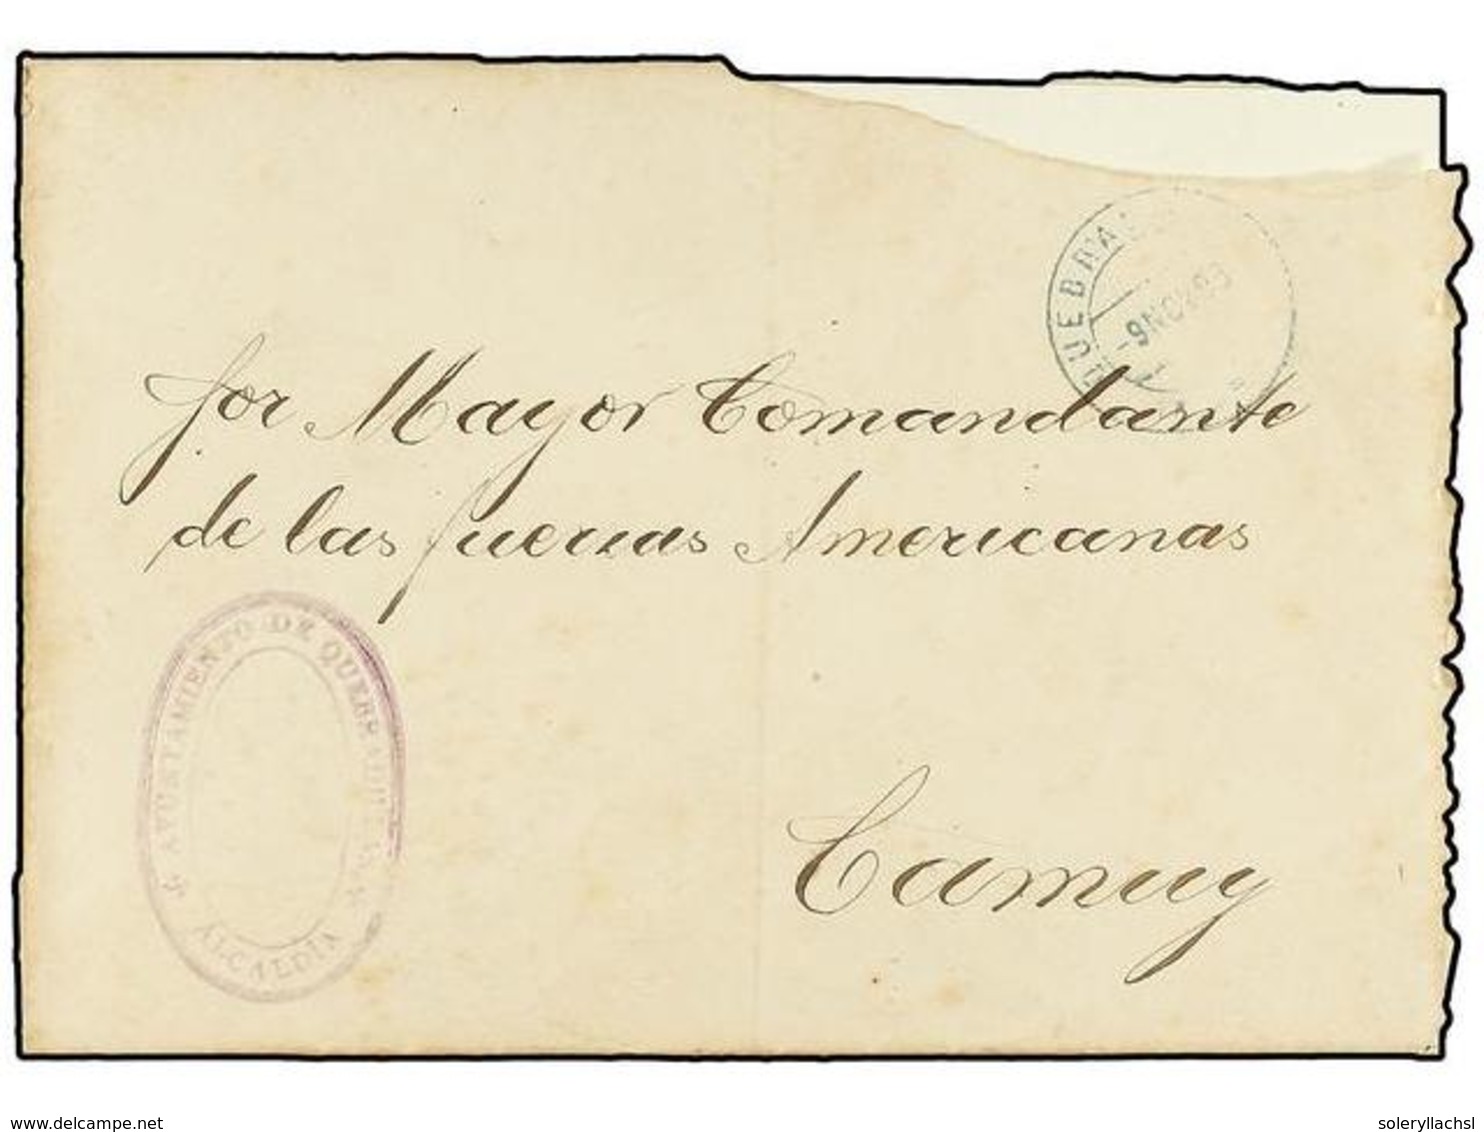 QUEBRA
-9 NOV 98
for Mayor Comandante
de las fuerzas Americanas
AYUNTAMIENTO DE QUEBRADILLAS
ALCALDIA
Camuy
delcampe.net
soleryllachsl